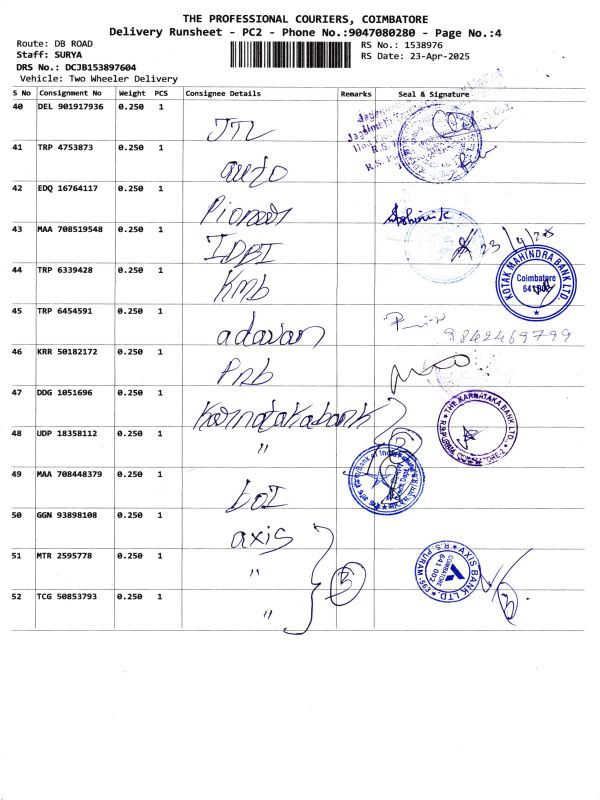 THE PROFESSIONAL COURIERS, COIMBATORE
Delivery Runsheet - PC2 - Phone No.:9047080280 - Page No.:4
Route: DB ROAD
RS No.: 1538976
Staff: SURYA
RS Date: 23-Apr-2025
DRS No.: DCJB153897604
Vehicle: Two Wheeler Delivery
S No Consignment No Weight PCS Consignee Details Remarks Seal & Signature
40 DEL 901917936 0.250 1
41 TRP 4753873 0.250 1
auto
42 EDQ 16764117 0.250 1
Pioneer
43 MAA 708519548 0.250 1
IDBI
23/4/25
44 TRP 6339428 0.250 1
Kmb
KOTAK MAHINDRA BANK LTD.
Coimbatore
45 TRP 6454591 0.250 1
9842469799
46 KRR 50182172 0.250 1
Pnb
47 DDG 1051696 0.250 1
Karnataka bank
THE KARNATAKA BANK LTD.
48 UDP 18358112 0.250 1
"
49 MAA 708448379 0.250 1
boI
Bank of India
50 GGN 93898108 0.250 1
axis
51 MTR 2595778 0.250 1
"
3
AXIS BANK LTD.
R.S. PURAM
COIMBATORE
641 002
52 TCG 50853793 0.250 1
"